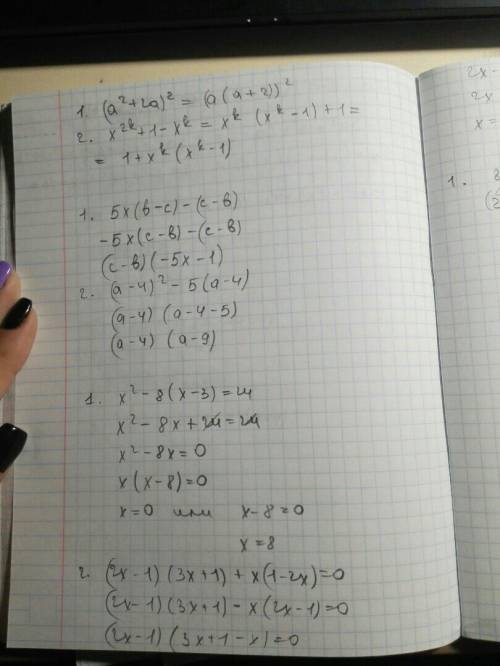 1. (a²+2a)² = (a(a+2))²
2. x²ᵏ+1-xᵏ = xᵏ (xᵏ-1)+1=
= 1+xᵏ(xᵏ-1)
1. 5x(в-с)-(с-в)
-5x(с-в)-(с-в)
(с-в)(-5x-1)
2. (a-4)²-5(a-4)
(a-4) (a-4-5)
(a-4) (a-9)
1. x²-8(x-3)=24
x²-8x+24=24
x²-8x=0
x(x-8)=0
x=0 или x-8=0
x=8
2. (2x-1)(3x+1)+x(1-2x)=0
(2x-1)(3x+1)-x(2x-1)=0
(2x-1)(3x+1-x)=0
2x-
2x
x=
1.
(2